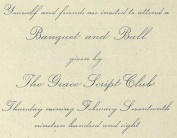 Yourself and friends are invited to attend a
Banquet and Ball
given by
The Grace Script Club
Thursday evening February Seventeenth
nineteen hundred and eight